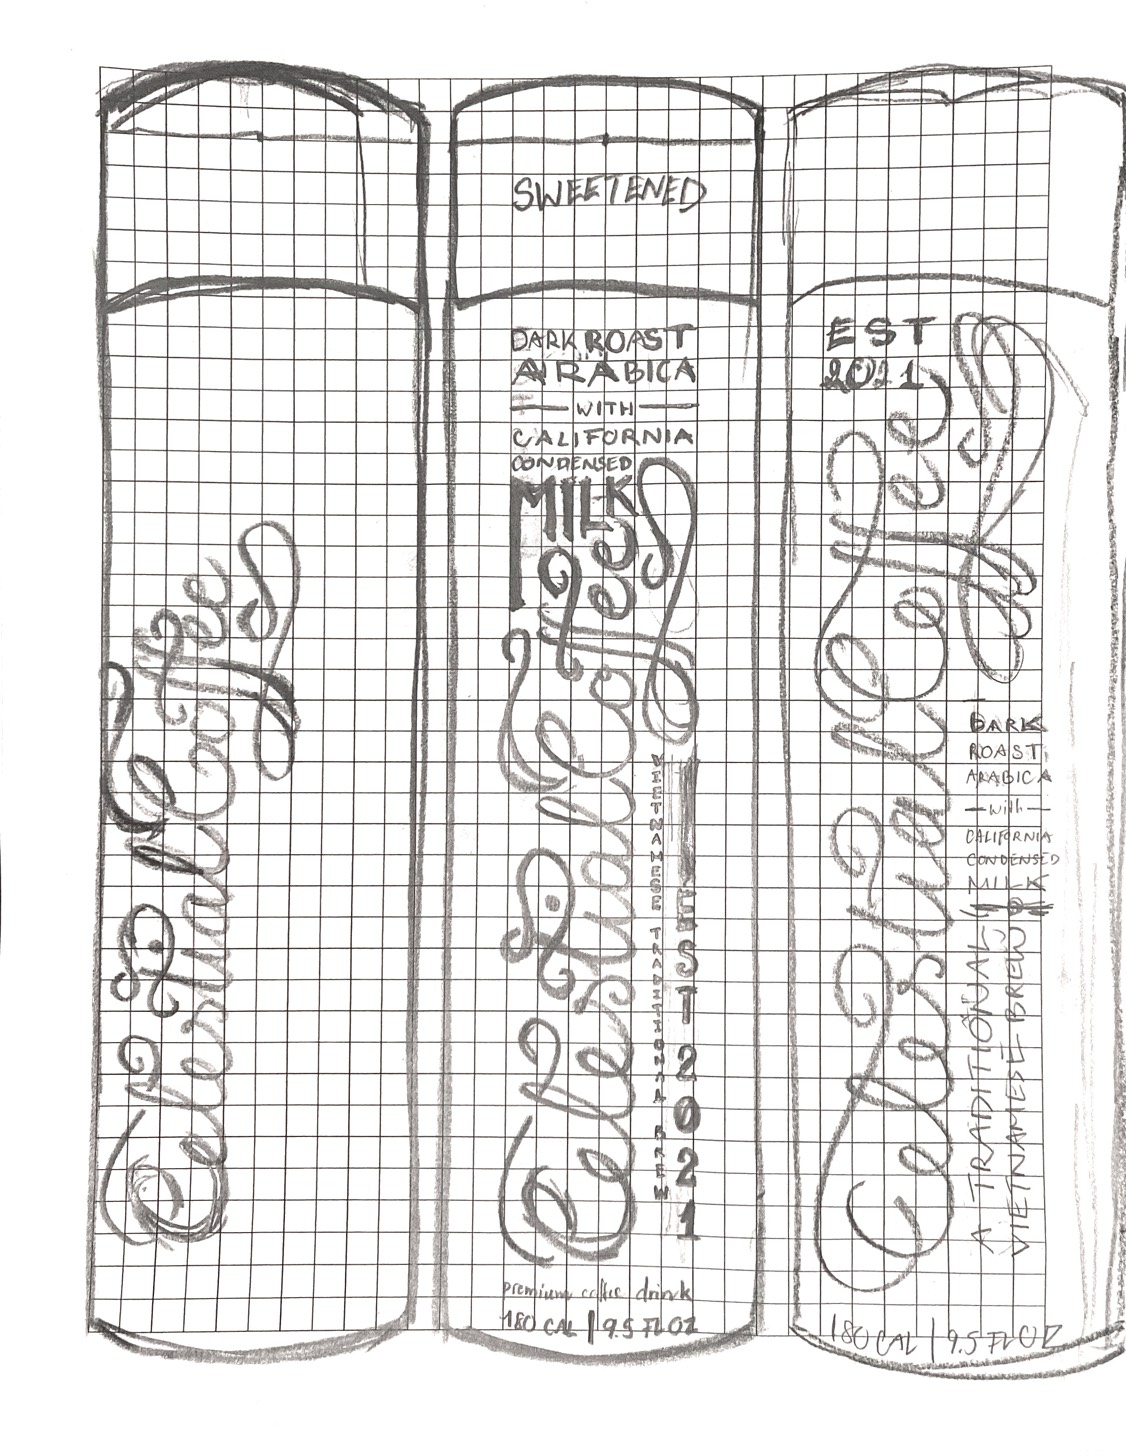 Celestial Coffee
SWEETENED
DARK ROAST
ARABICA
WITH
CALIFORNIA
CONDENSED
MILK
Celestial Coffee
VIETNAMESE TRADITIONAL BREW
EST 2021
premium coffee drink
180 CAL | 9.5 FL OZ
EST
2021
Celestial Coffee
DARK
ROAST
ARABICA
with
CALIFORNIA
CONDENSED
MILK
A TRADITIONAL
VIETNAMESE BREW
180 CAL | 9.5 FL OZ